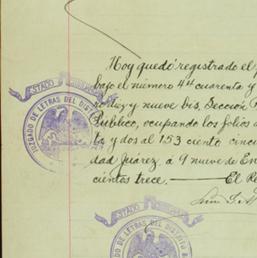 Hoy quedó registrado el
bajo el número 44 cuarenta y
nueve bis, Sección
Publico, ocupando los folios
ta y dos al 153 cento cinc
dad Juárez, á 9 nueve de En
cientos trece. El Re
ESTADO
JUZGADO DE LETRAS DEL DISTRITO
ESTADO
JUZGADO DE LETRAS DEL DISTRITO